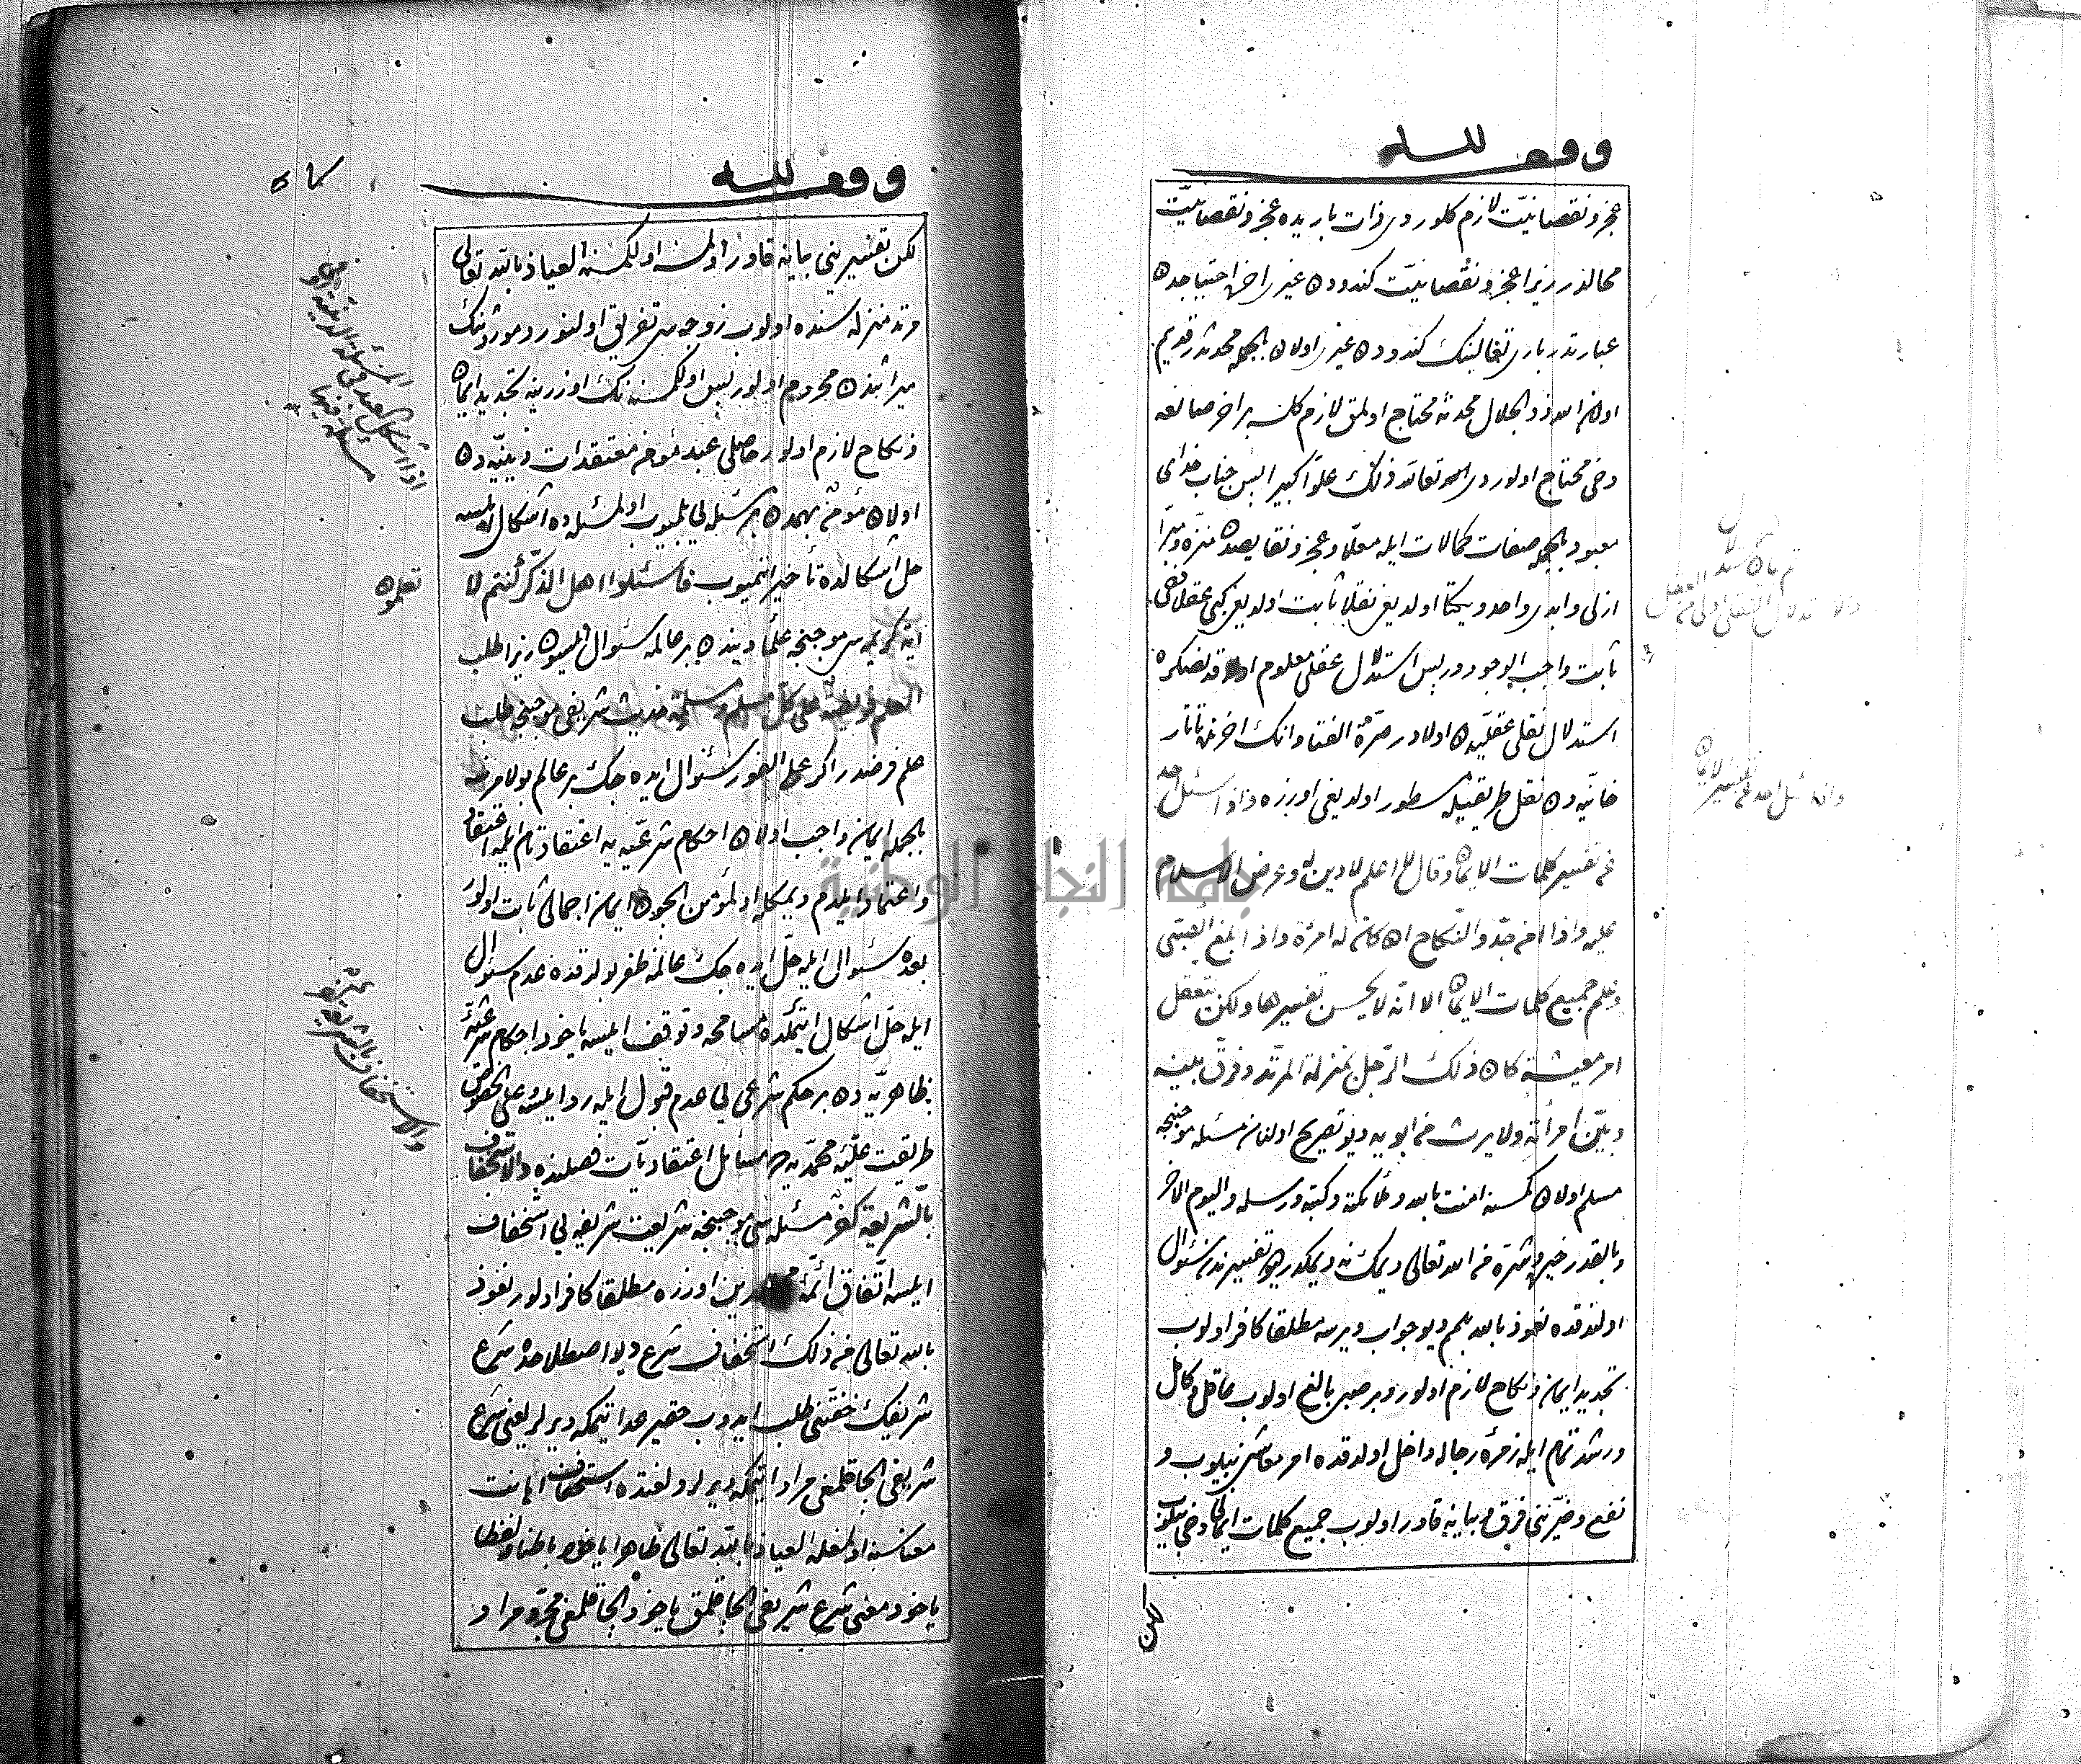 وقف لله
عجز و نقصانيّت لازم كلوردى ذات باريده عجز و نقصانيّت
محالدر زيرا عجز و نقصانيّت كندودن غيرى احتياجدن
عبارتدر بارى تعالينك كندودن غيرى اولان بالجمله محدثدر قديم
اولان الله ذو الجلال محدثه محتاج اولمق لازم كلسه بر اخر صانعه
دخى محتاج اولوردى الله تعالى ذلك علوّا كبيرا پس جناب خداى
معبود بالجمله صفات كمالات ايله معلّا و عجز و نقايصدن منزّه و مبرّا
ازلى و ابدى و احد و يكتا اولديغى نقلا ثابت اولديغى كبى عقلا دخى
ثابت واجب الوجوددر پس استدلال عقلى معلوم اولدقدنصكره
استدلال نقلى عقليدن اولادر صرّة الفتاوانك اخرنده تاتار
خانيّه دن نقل طريقيله مسطور اولديغى اوزره و اذا سئل احد
عن تفسير كلمات الايمان وقال لا اعلم لا دين له وعرض الاسلام
عليه واذا امن جدّد النكاح ان كان له امرأة واذا بلغ الصبى
وعلم جميع كلمات الايمان الا انّه لا يحسن تفسيرها ولكن يتعقل
امر معيشته كان ذلك الرّجل بمنزلة المرتد وفرّق بينه
وبين امرأته ولا يرث من ابويه ديو تصريح اولنان مسئله موجبنجه
مسلم اولان كمسنه امنت بالله وملائكته وكتبه ورسله واليوم الاخر
وبالقدر خيره وشره من الله تعالى ديمك نه ديمكدر ديو تفسيرندن سئوال
اولندقده نعوذ بالله بلمم ديو جواب ويرسه مطلقا كافر اولوب
تجديد ايمان و نكاح لازم اولور و بر صبى بالغ اولوب عاقل و كامل
و رشد تمام ايله زمرۀ رجاله داخل اولدقده امر معاشن بيلوب و
نفع و ضررينى فرق و بيانه قادر اولوب جميع كلمات ايمانى دخى بيلوب
لكن
وقف لله
لكن تفسيرينى بيانه قادر اولمسه اولكمسنه العياذ بالله تعالى
مرتد منزله سنده اولوب زوجه سى تفريق اولنور و مورثنك
ميراثندن محروم اولور پس اولكمسنه نك اوزرينه تجديد ايمان
و نكاح لازم اولور حاصلى عبد مؤمن معتقدات دينيّه دن
اولان مؤمن بهمدن بر مسئله يى بلميوب اولمسئله ده اشكال اولسه
حل اشكالده تأخير ايتميوب فاسئلوا اهل الذكر ان كنتم لا
تعلمون
آيۀ كريمه سى موجبنجه علماء ديندن بر عالمه سئوال ايلسون زيرا طلب
العلم فريضة على كل مسلم ومسلمة حديث شريفى موجبنجه طلب
علم فرضدر اكر على الفور سئوال ايده جك بر عالم بولامزسه
بالجمله ايمان واجب اولان احكام شرعيّه يه اعتقاد تام ايله اعتقاد
و اعتماد ايلدم ديمكله اولمؤمن ايچون ايمان اجمالى ثابت اولور
بعده سئوال ايله حلّ ايده جك عالمه ظفر بولدقده عدم سئوال
ايله حلّ اشكال ايتمكده مسامحه و توقف ايلسه ياخود احكام شرعيّۀ
ظاهريّه دن بر حكم شرعى يى عدم قبول ايله رد ايلسه على الخصوص
طريقت عليّۀ محمّديه مسائل اعتقاديّات فصلنده والاستخفاف
بالشريعة كفر مسئله سى موجبنجه شريعت شريفه يى استخفاف
ايلسه اتفاق ائمّۀ اوزره مطلقا كافر اولور نعوذ
بالله تعالى من ذلك استخفاف شرع ديو اصطلاحده شرع
شريفك خفتنى طلب ايدوب حقير عد ايتمكه ديرلر يعنى شرع
شريفى الچاقلمغى مراد ايتمكه ديرلر و لغتده استخفاف اهانت
معناسنه اولمغله العياذ بالله تعالى ظاهرا ياخود باطنا و لفظا
ياخود معنى شرع شريفى الچاقلمق ياخود الچاقلمغى مجرّد مراد